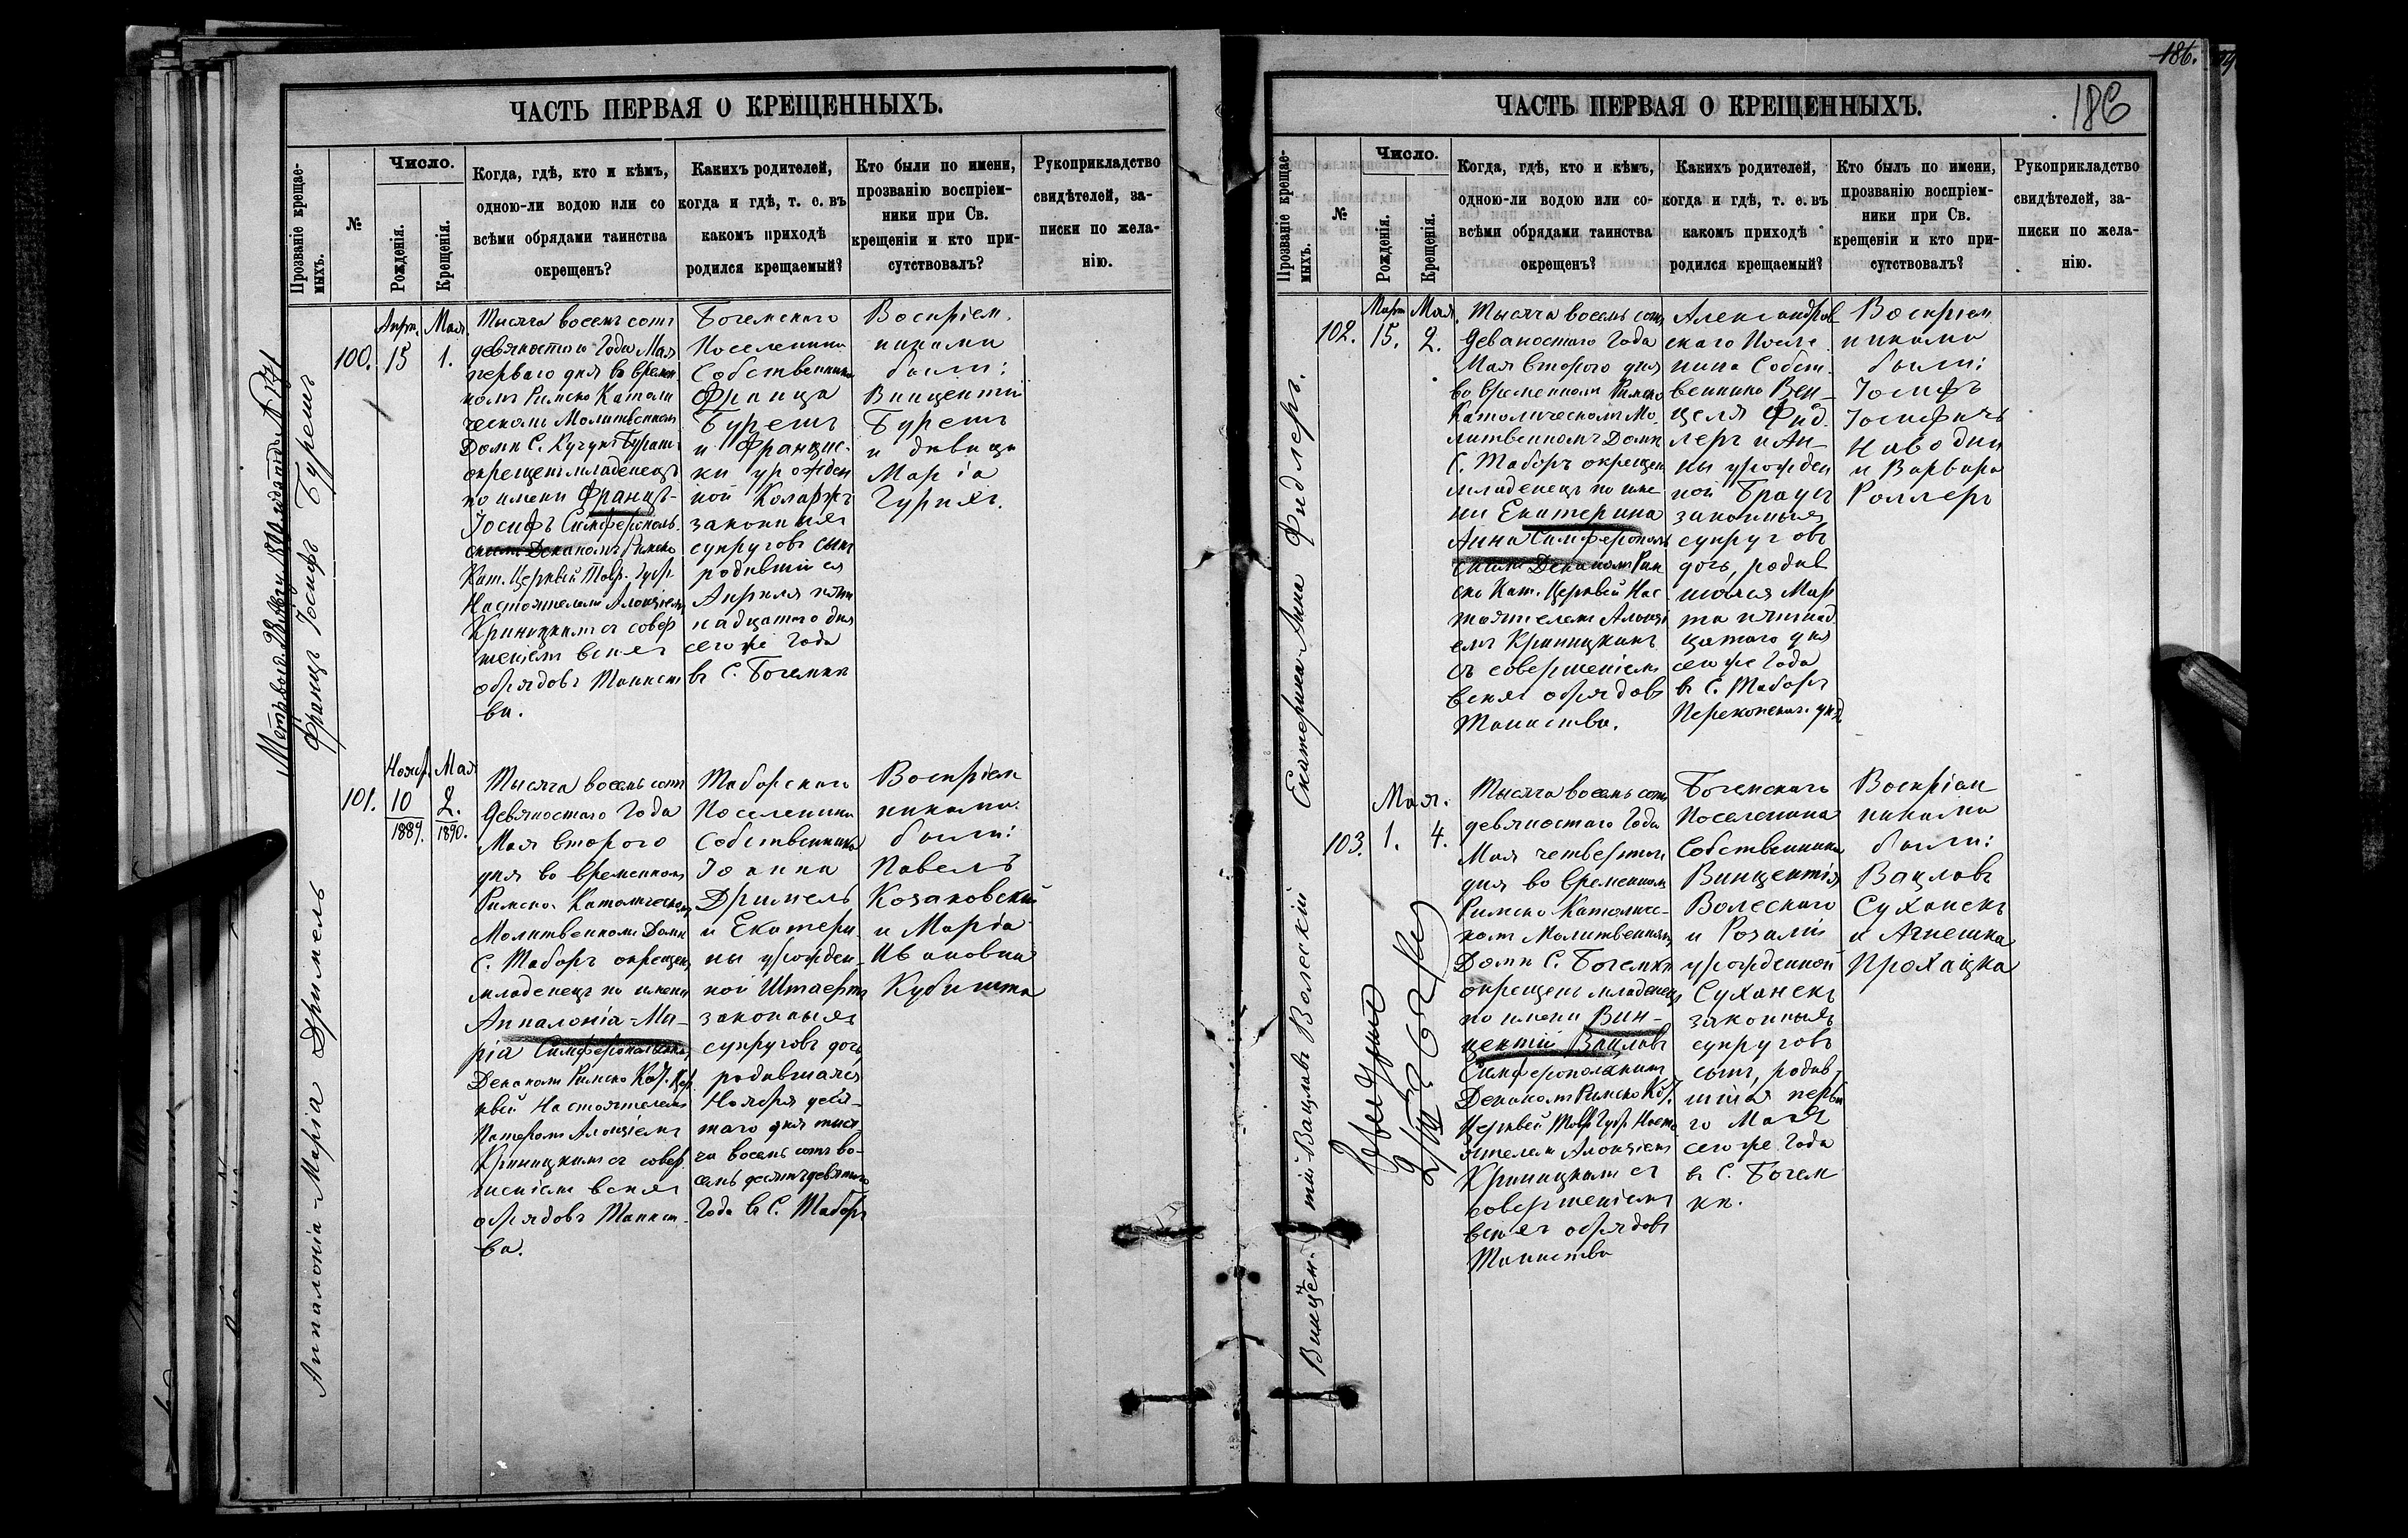 ЧАСТЬ ПЕРВАЯ О КРЕЩЕННЫХЪ.
Прозваніе крещае-
мыхъ.
№
Число.
Рожденія.
Крещенія.
Когда, гдѣ, кто и кѣмъ,
одною-ли водою или со
всѣми обрядами таинства
окрещенъ?
Какихъ родителей,
когда и гдѣ, т. е. въ
какомъ приходѣ
родился крещаемый?
Кто были по имени,
прозванію воспріем-
ники при Св.
крещеніи и кто при-
сутствовалъ?
Рукоприкладство
свидѣтелей, за-
писки по жела-
нію.
Францъ Іосифъ Бурешъ
100.
Апрѣ.
15
Мая
1.
Тысяча восемь сотъ
девяностого Года Мая
перваго дня во времен
номъ Римско Католи
ческомъ Молитвенномъ
Домѣ С. Кучукъ
окрещенъ младенецъ
по имени Францъ-
Іосифъ Симферополь.
скимъ Деканомъ Римско
Кат. Церквей Тавр. Губр
Настоятелемъ Алоизіемъ
Криницкимъ съ совер
шеніемъ всѣхъ
обрядовъ Таинст
ва.
Богемскаго
Поселенина
Собственника
Франца
Бурешъ
и Францис-
ки урожден
ной Коларжъ
законныхъ
супруговъ сынъ
родившійся
Апреля пят
надцатого дня
сего же Года
въ С. Богемкѣ
Воспріем.
никами
были:
Винцентій
Бурешъ
и дѣвица
Марія
Гурихъ.
Аппалонія-Марія Дримель
101.
Нояб.
10
1889.
Мая
2.
1890.
Тысяча восемь сотъ
Девяностаго Года
Мая второго
дня во временномъ
Римско-Католическомъ
Молитвенномъ Домѣ
С. Таборъ окрещенъ
младенецъ по имени
Аппалонія-Ма-
рія Симферопольскимъ
Деканомъ Римско Кат. Цер
квей Настоятелемъ
Патеромъ Алоизіемъ
Криницкимъ съ совер
шеніемъ всѣхъ
обрядовъ Таинст
ва.
Таборскаго
Поселенина
Собственника
Іоанна
Дримель
и Екатери
ны урожден-
ной
законныхъ
супруговъ дочь
родившаяся
Ноября деся-
таго дня тыся
ча восемь сотъ во-
семь десятъ девятого
Года въ С. Таборъ
Воспріем
никами
были:
Павелъ
Козаковскій
и Марія
Ивановна
Кубишта
186.
186
ЧАСТЬ ПЕРВАЯ О КРЕЩЕННЫХЪ.
Прозваніе крещае-
мыхъ.
№
Число.
Рожденія.
Крещенія.
Когда, гдѣ, кто и кѣмъ,
одною-ли водою или со-
всѣми обрядами таинства
окрещенъ?
Какихъ родителей,
когда и гдѣ, т. е. въ
какомъ приходѣ
родился крещаемый?
Кто былъ по имени,
прозванію воспріем-
ники при Св.
крещеніи и кто при-
сутствовалъ?
Рукоприкладство
свидѣтелей, за-
писки по жела-
нію.
Екатерина-Анна Фидлеръ.
102.
Март
15.
Мая.
2.
Тысяча восемь сотъ
Деваностаго Года
Мая второго дня
во временномъ Римско
Католическомъ Мо-
литвенномъ Домѣ
С. Таборъ окрещен
младенецъ по име
ни Екатерина
Анна Симферополь
скимъ Деканомъ Рим
ско Кат. Церквей Нас
тоятелемъ Алоизі
емъ Криницкимъ
съ совершеніемъ
всѣхъ обрядовъ
Таинства.
Александров
скаго После
нина Собст.
венника Вен-
целя Фид.
леръ и Ан-
ны урожден
ной Браунъ
законныхъ
супруговъ
дочь, родив
шаяся Мар
та пятнад
цатаго дня
сего же Года
въ С. Таборъ
Перекопскаг. уѣз.
Воспріем
никами
были:
Іосифъ
Іосифичъ
Наводни
и Варвара
Роллеръ
Винцен-тій-Вацлавъ Волескій
103.
Мая.
1.
4.
Тысяча восемь сотъ
девяностаго Года
Мая четвертаго
дня во временномъ
Римско Католичес-
комъ Молитвенномъ
Домѣ С. Богемкѣ
окрещенъ младенецъ
по имени Вин-
центій Вацлавъ
Симферопольскимъ
Деканомъ Римско Кат.
Церквей Тавр Губр Насто
ятелемъ Алоизіемъ
Криницкимъ съ
совершеніемъ
всѣхъ обрядовъ
Таинства
Богемскаго
Поселенина
Собственника
Винцентія
Волескаго
и Розаліи
урожденной
Суханекъ
законныхъ
супруговъ
сынъ, родив-
шійся перва
го Мая
сего же Года
въ С. Богем
кѣ.
Воспріем
никами
были:
Вацлавъ
Суханекъ
и Агнешка
Прохацка